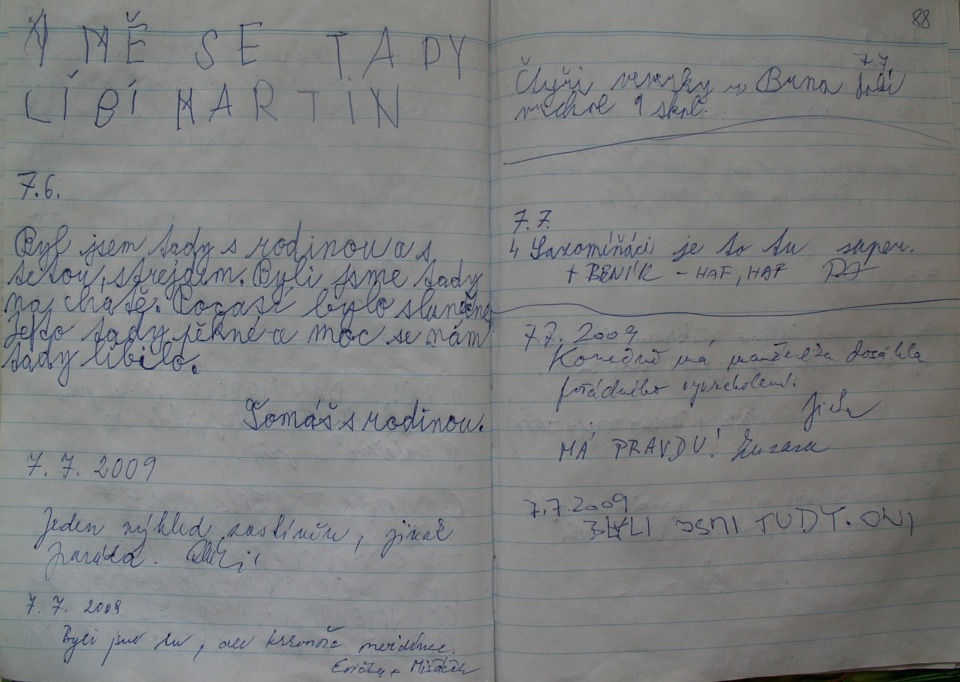 A MĚ SE TADY
LÍBÍ MARTIN
7.6.
Byl jsem tady s rodinou a s
tetou, strejdem. Byli jsme tady
na chatě. Počasí bylo slunečné
Je to tady pěkné a moc se nám
tady líbilo.
Tomáš s rodinou.
7. 7. 2009
Jeden výhled zastíněn, jinak
paráda.
7. 7. 2009
Byli jsme tu, ale Krkonoše nevidíme.
Evička + Mišáček
88
7.7.
Čtyři veverky z Brna došli
vrchol 9 skal.
7.7.
4 Lakomíňáci je to tu super.
+ BENIK - HAF, HAF
7.7.2009
Konečně má manželka dosáhla
pořádného vyvrcholení.
Jirka
MÁ PRAVDU! Zuzana
7.7.2009
BYLI JSMI TUDY. ONI